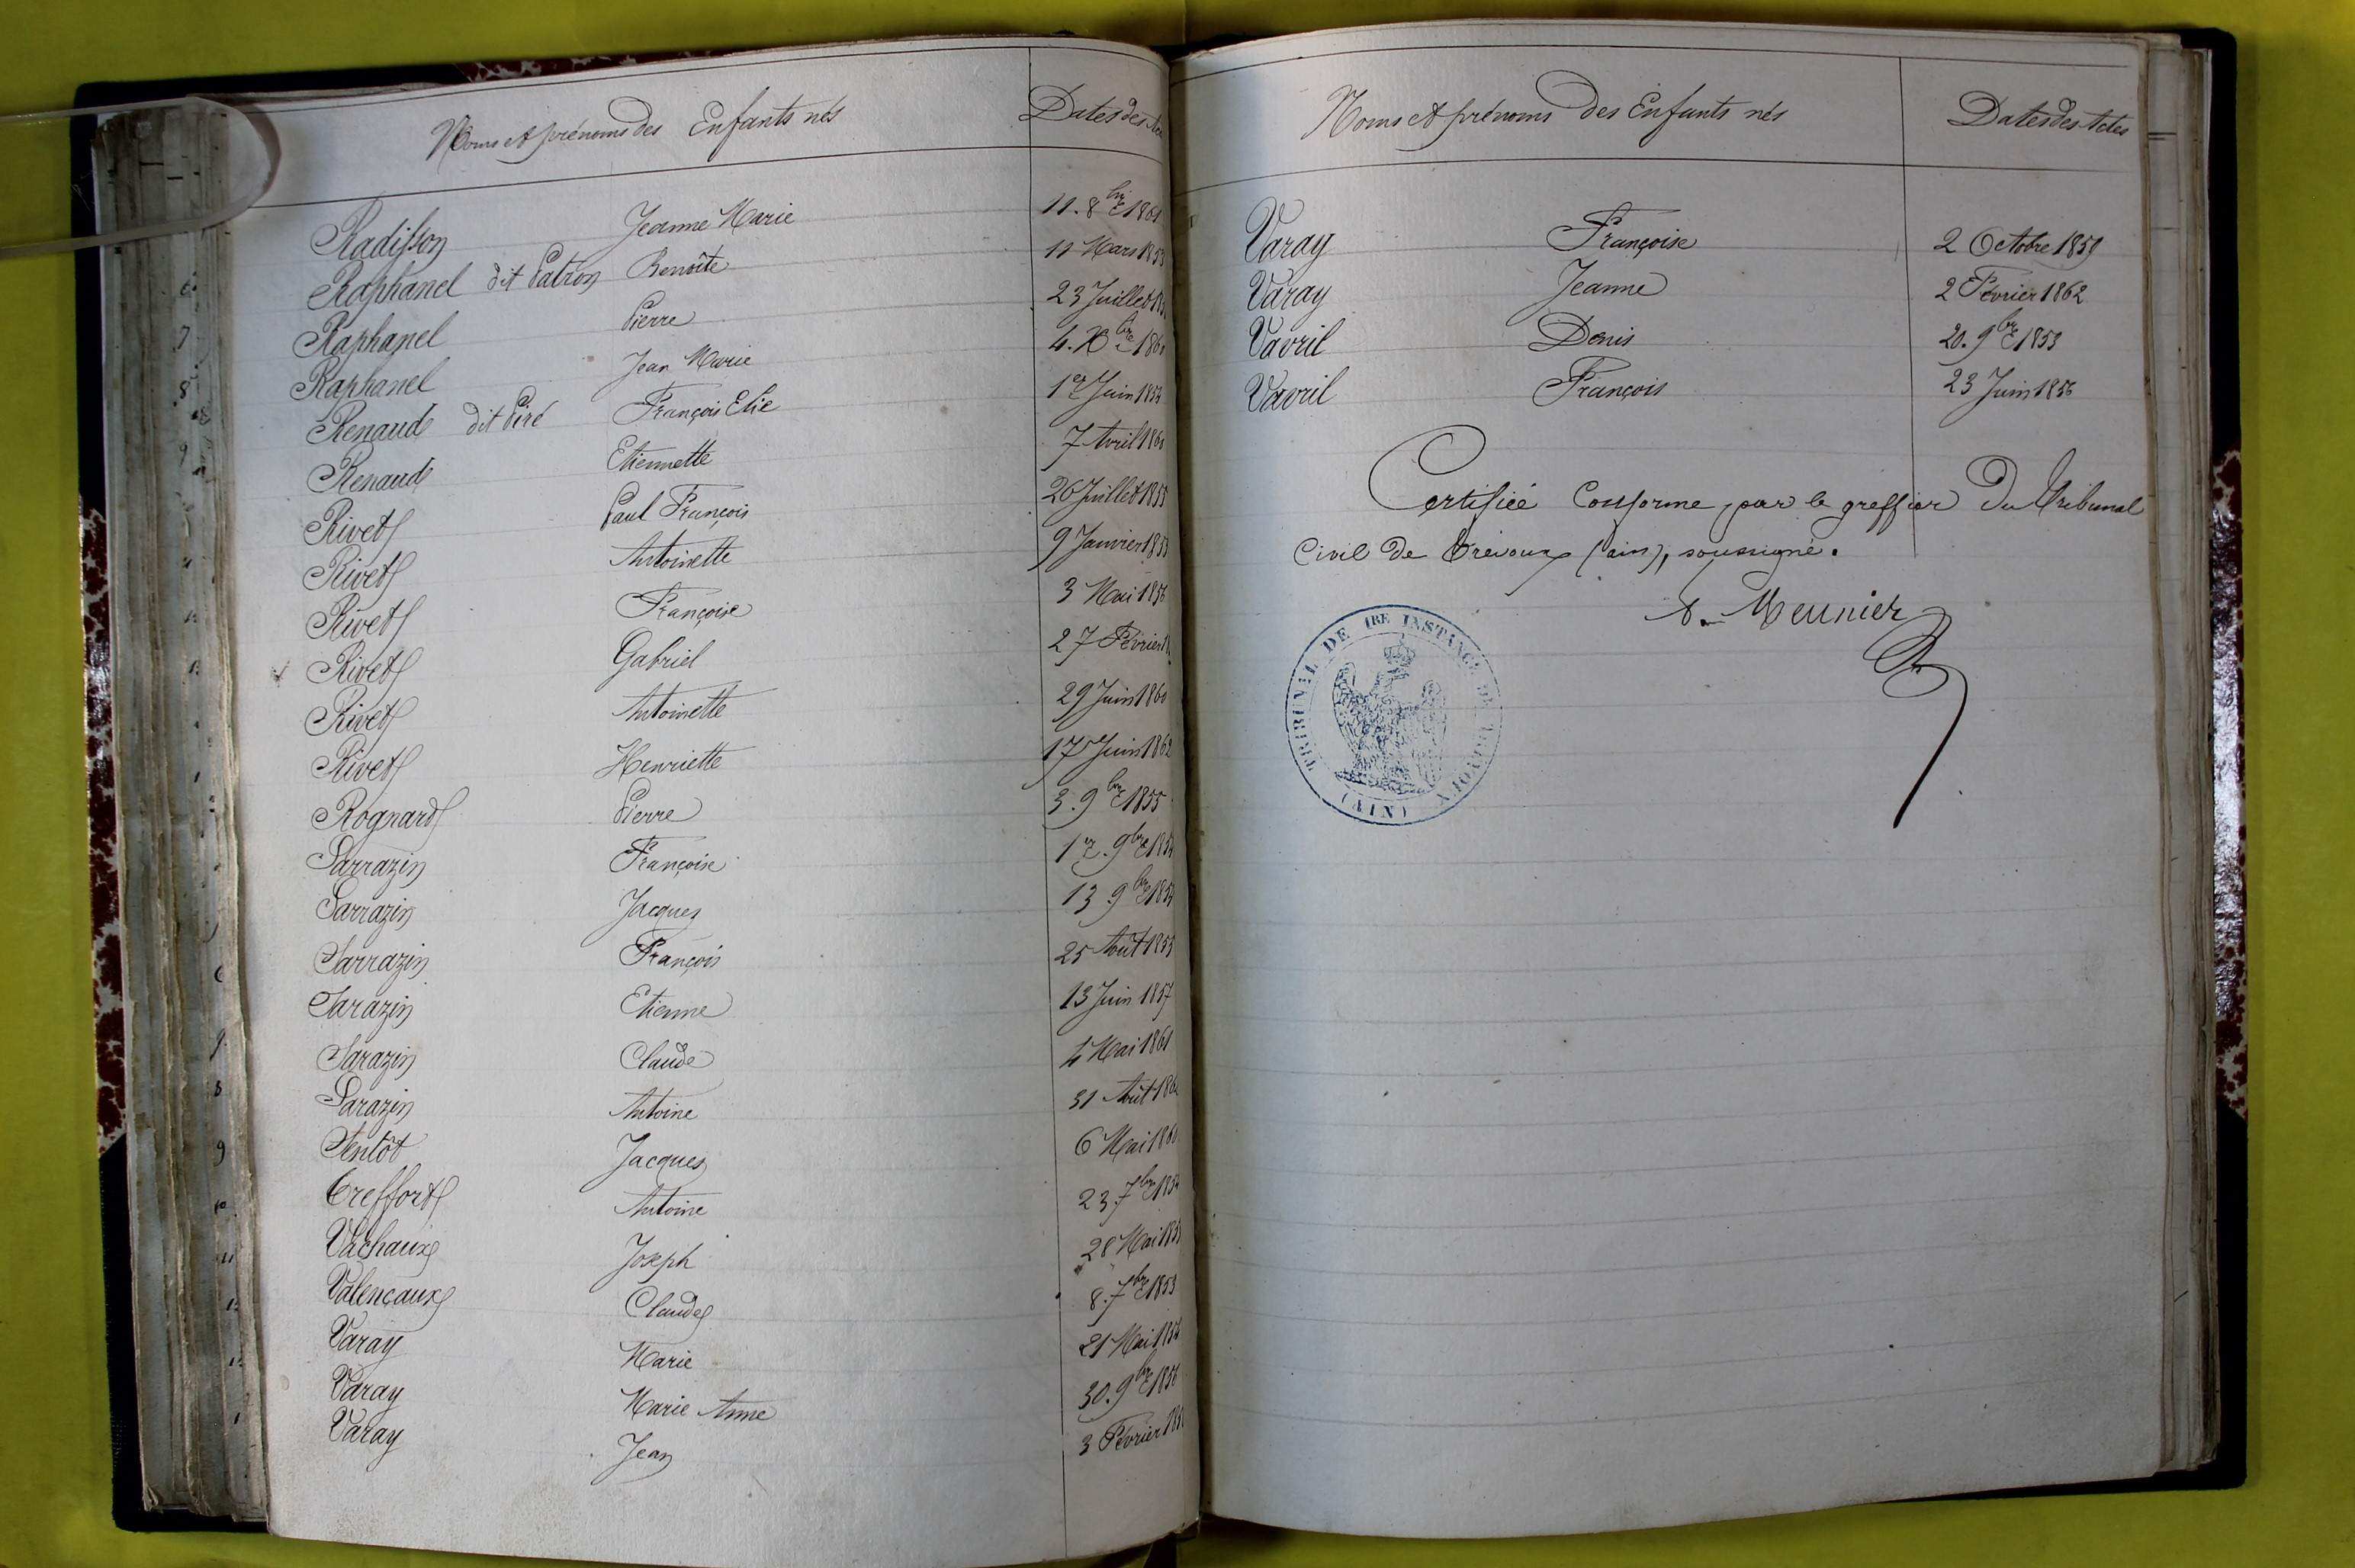 Noms et prénoms des Enfants nés Dates des Acte
Radisson Jeanne Marie 11. 8bre 1861
Raphanel dit Patron Benoîte 11 Mars 1853
Raphanel Pierre 23 Juillet
Raphanel Jean Marie 4. Xbre 1860
Renaud dit Piré François Elie 1er Juin 1854
Renaud Etiennette 7 Avril 1860
Rivet Paul François 26 Juillet 1855
Rivet Antoinette 9 Janvier 1853
Rivet Françoise 3 Mai 1856
Rivet Gabriel 27 Février
Rivet Antoinette 29 Juin 1860
Rivet Henriette 17 Juin 1862
Rognard Pierre 3. 9bre 1855
Sarrazin Françoise 1er. 9bre 1854
Sarrazin Jacques 13 9bre 1854
Sarrazin François 25 Août 1855
Sarazin Etienne 13 Juin 1857
Sarazin Claude 4 Mai 1861
Sarazin Antoine 31 Août 1862
Sentôt Jacques 6 Mai 1860
Treffort Antoine 23. 7bre 1854
Vachaux Joseph 28 Mai 1853
Valençaux Claude 8. 7bre 1853
Varay Marie 21 Mai 1854
Varay Marie Anne 30. 9bre 1856
Varay Jean 3 Février
Noms et prénoms des Enfants nés Dates des Actes
Varay Françoise 2 Octobre 1859
Varay Jeanne 2 Février 1862
Vavril Denis 20. 9bre 1853
Vavril François 23 Juin 1856
Certifiée Conforme, par le greffier du Tribunal
Civil de Trévoux (ain), soussigné.
A. Meunier
TRIBUNAL DE 1RE INSTANCE DE TRÉVOUX
(AIN)